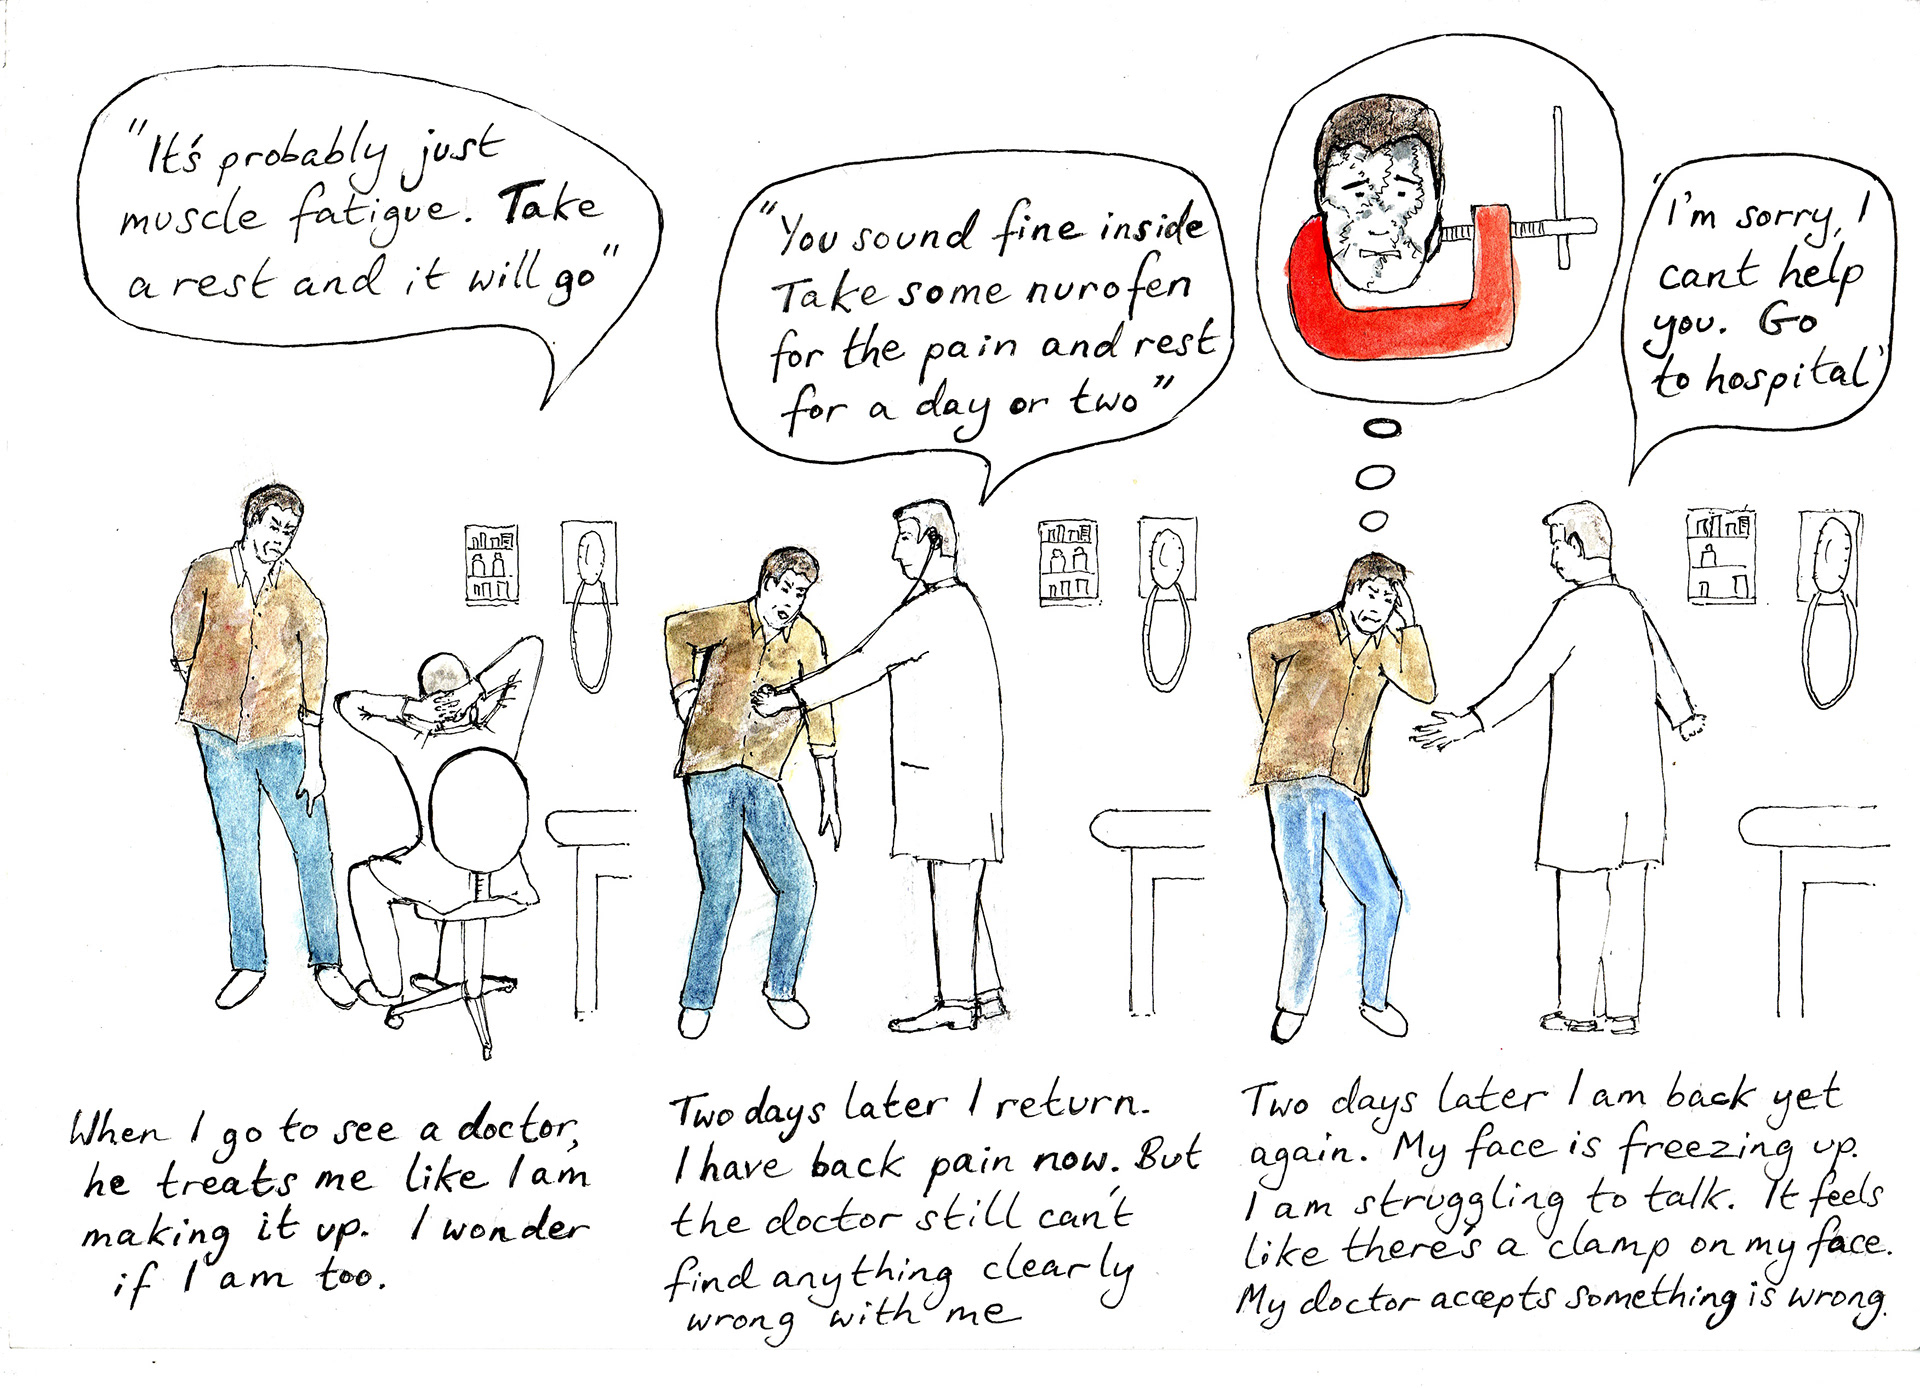 "It's probably just
muscle fatigue. Take
a rest and it will go"
When I go to see a doctor,
he treats me like I am
making it up. I wonder
if I am too.
"You sound fine inside
Take some nurofen
for the pain and rest
for a day or two"
Two days later I return.
I have back pain now. But
the doctor still can't
find anything clearly
wrong with me
"I'm sorry, I
cant help
you. Go
to hospital"
Two days later I am back yet
again. My face is freezing up.
I am struggling to talk. It feels
like there's a clamp on my face.
My doctor accepts something is wrong.